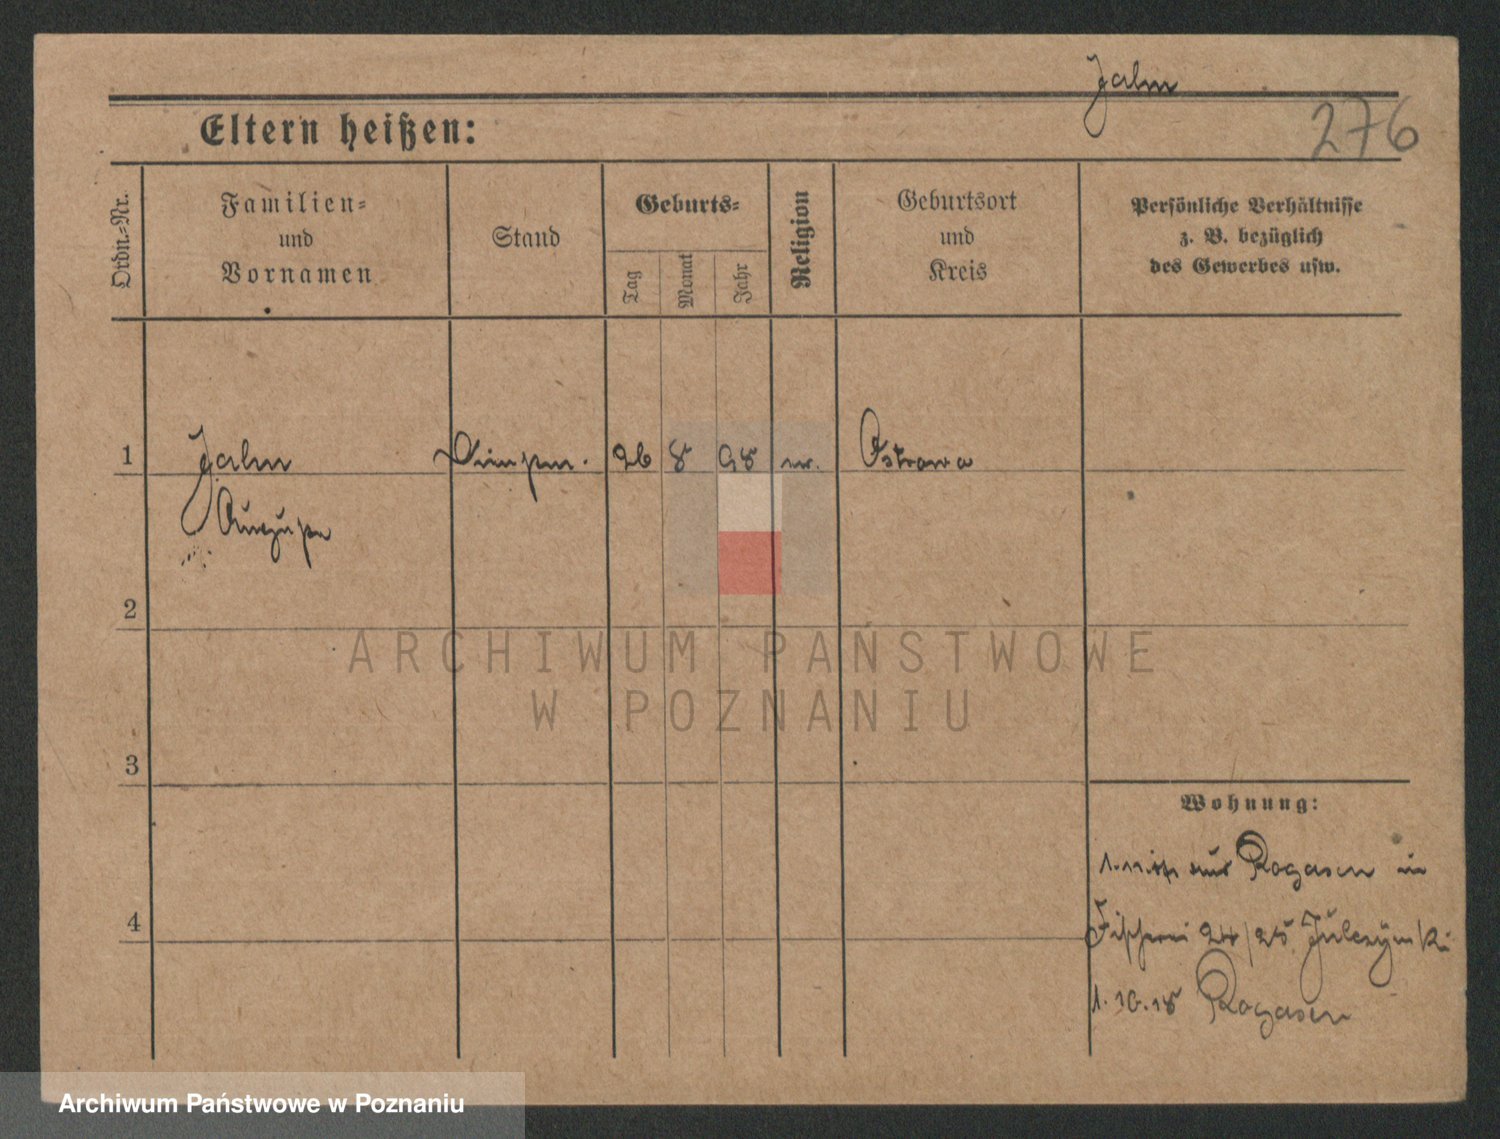 Jahn
276
Eltern heißen:
Ordn.-Nr.
Familien-
und
Vornamen
Stand
Geburts-
Tag
Monat
Jahr
Religion
Geburtsort
und
Kreis
Persönliche Verhältnisse
z. B. bezüglich
des Gewerbes usw.
1 Jahn 26 8 98 Ostrowo
2
3
Wohnung:
aus Rogasen in
4
Fischerei 24/25
1.10.18 Rogasen
ARCHIWUM PAŃSTWOWE
W POZNANIU
Archiwum Państwowe w Poznaniu